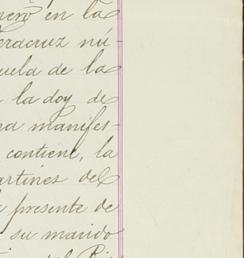 nero en la
eracruz nú-
uela de la
la doy de
ra manifes-
contiene, la
artinez del
presente de
su marido